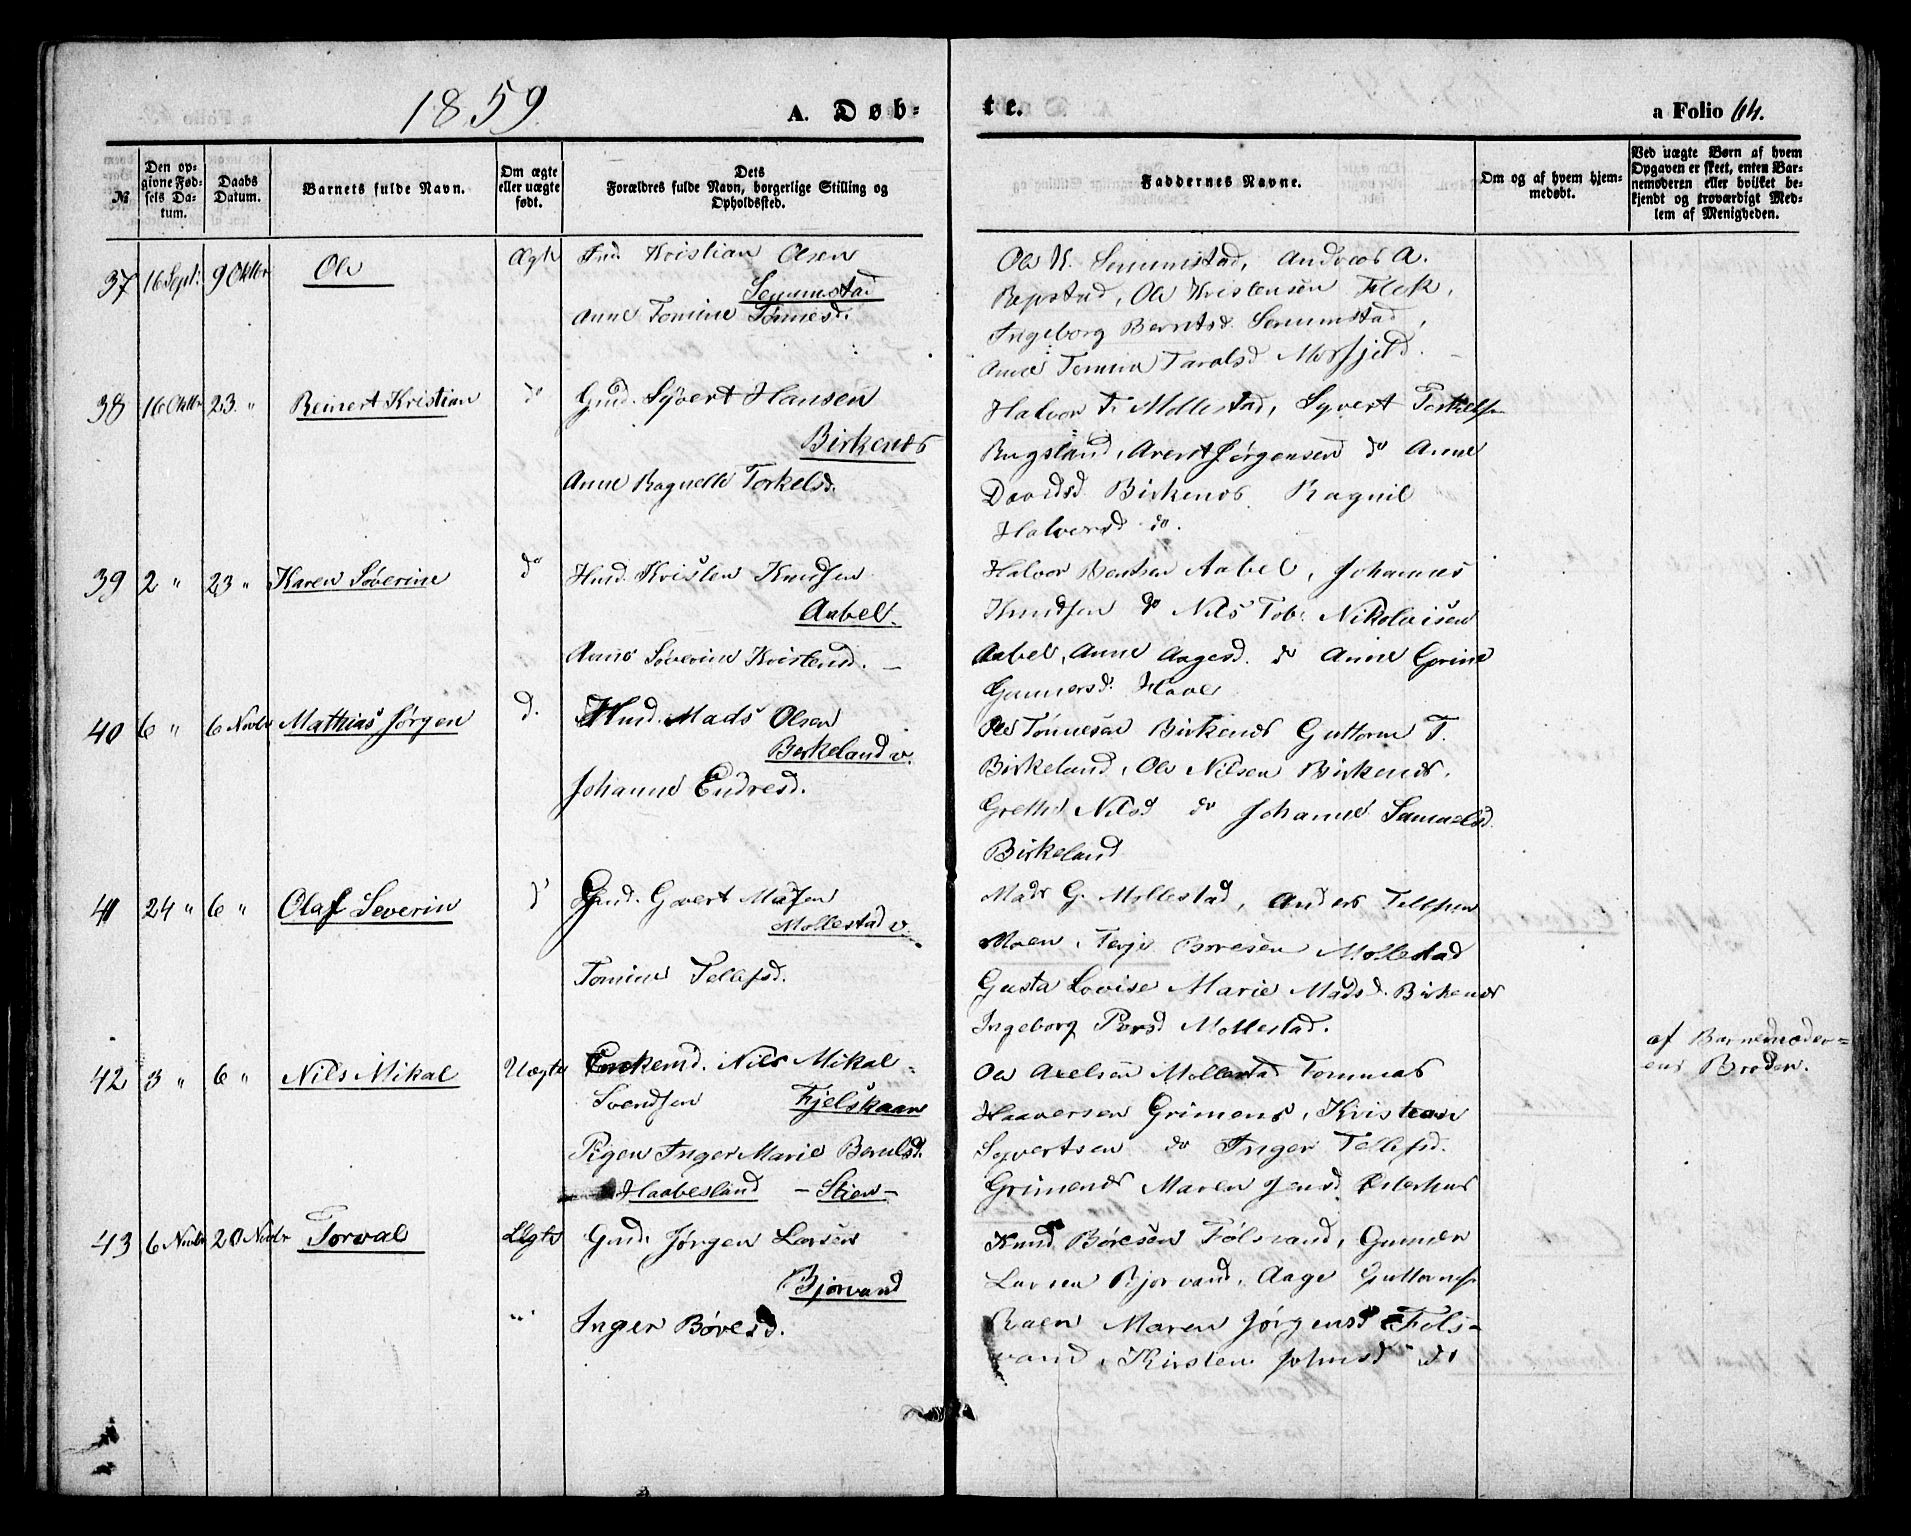 1859.
A. Døb-
te.
a Folio 64.
№
Den op-
givne Fød-
sels Da-
tum.
Daabs
Datum.
Barnets fulde Navn.
Om ægte
eller uægte
født.
Dets
Forældres fulde Navn, borgerlige Stilling og
Opholdssted.
Faddernes Navne.
Om og af hvem hjem-
medøbt.
Ved uægte Børn af hvem
Opgaven er skeet, enten Bar-
nemoderen eller hvilket be-
kjendt og troværdigt Med-
lem af Menigheden.
37 16 Sept: 9 Oktbr Ole Ægte Kristian Olsen
Senumstad
Anne Tomine Tønnesd.
Ole K. Senumstad, Andreas A.
Repstad, Ole Kristensen Flek,
Ingeborg Berntsd. Senumstad,
Anne Tomine Taralsd Mosfjeld.
38 16 Oktbr 23 " Reinert Kristian do Gmd. Syvert Hansen
Birkenes
Anne Ragnille Torkelsd.
Halvor T. Mollestad, Syvert Torkelsen
Rugsland, Arent Jørgensen do Anne
Davidsd Birkenes Ragnil
Halvorsd do.
39 2 " 23 " Karen Søverine do Hmd. Kristen Knudsen
Aabel.
Anne Søverine Kristensd. –
Halvor Bentsen Aabel, Johannes
Knudsen do Nils Tob. Nikolaisen
Aabel, Anne Aagesd. do Anne Gurine
Gunnersd. Have
40 6 " 6 Novbr Mathias Jørgen d. Hmd. Mads Olsen
Berkeland v.
Johanne Endresd.
Ole Tønnesen Birkenes Guttorm T.
Birkeland, Ole Nilsen Birkenes.
Grethe Nilsd do Johanne Samuelsd.
Birkeland
41 24 " 6 " Olaf Severin d Gmd. Govert Madsen
Mollestad v.
Tomine Tellefsd.
Mads G. Mollestad, Anders Tellefsen
Moen, Terje Boresen Mollestad
Gusta Lovise Marie Madsd. Birkenes
Ingeborg Persd Mollestad.
42 3 " 6 " Nils Mikal Uægte Enkemd. Nils Mikal
Svendsen Fjelskaar
Pigen Inger Marie Berulsd.
Haabesland – Stien –
Ole Axelsen Mollestad Tommas
Haaversen Grimenes, Kristian
Syvertsen do Inger Tellefsd.
Grimenes Maren Jensd Østerhus
af Barnemoder=
ens Broder.
43 6 Novbr 20 Novbr Torval Ægte Gmd. Jørgen Larsen
Bjorvand
Inger Børesd.
Knud Børesen Følsvand, Gunner
Larsen Bjorvand, Aage Guttormsen
Roen Maren Jørgensd Føls-
vand, Kirsten Johnsd do